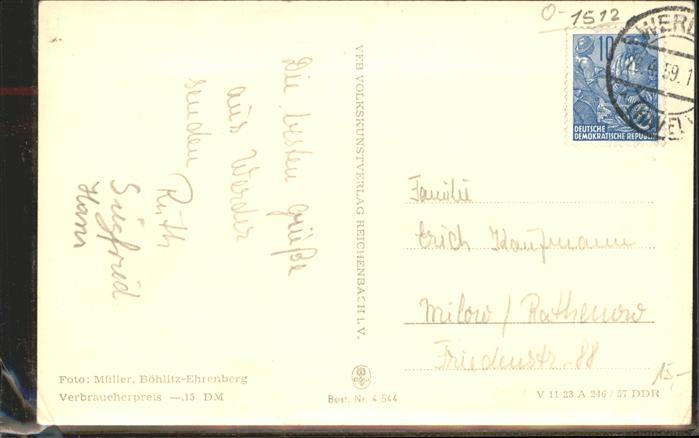 O- 1512
WERD
9.59.1
(HAVEL)
10
DEUTSCHE
DEMOKRATISCHE REPUBLIK
Die besten Grüße
aus Werder
senden
Ruth
Siegfried
Hans
VEB VOLKSKUNSTVERLAG REICHENBACH I. V.
Familie
Erich Kaufmann
Milow / Rathenow
Friedenstr. 88
15,-
Foto: Müller, Böhlitz-Ehrenberg
Verbraucherpreis —,15 DM
Best. Nr. 4 544
V 11 23 A 246 / 57 DDR